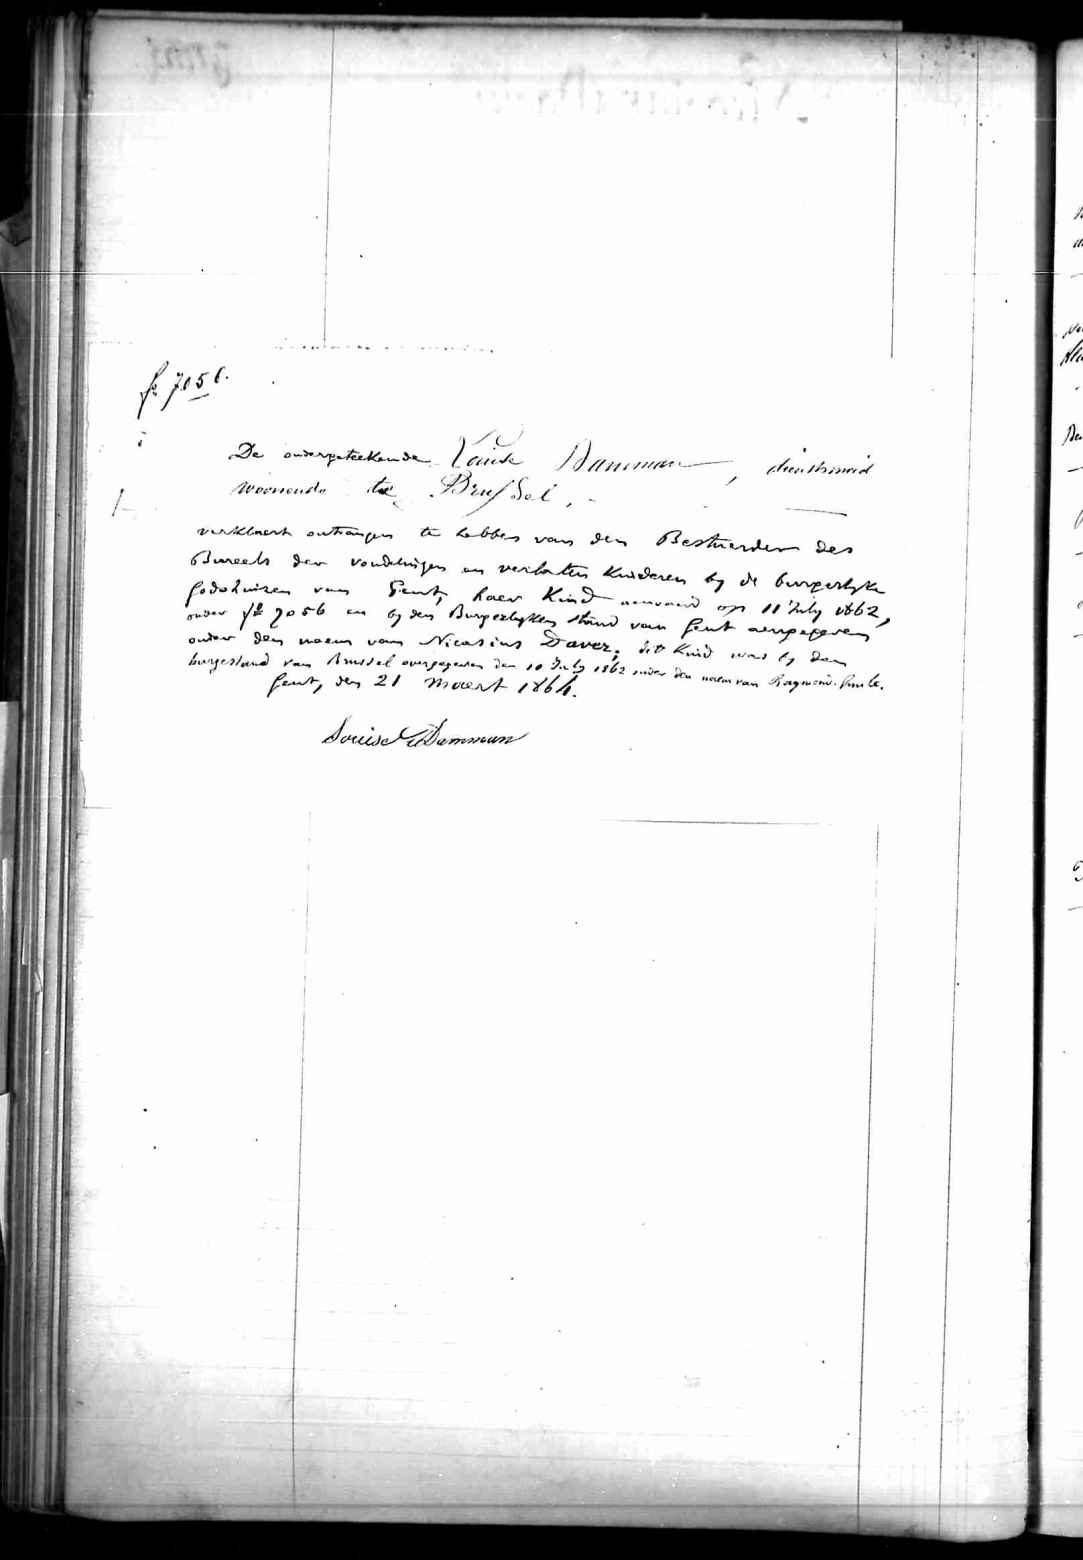 fº 7056.
De ondergeteekende Louise Damman, dienstmeid
woonende te Brussel,
verklaert ontfangen te hebben van den Bestierder des
Bureels der vondelingen en verlaten Kinderen by de burgerlyke
godshuizen van Gent, haer Kind aenvaerd op 11 July 1862,
onder fº 7056 en by den Burgerlyken stand van Gent aengegeven
onder den naem van Nicasius Daver; dit Kind was by den
burgerstand van Brussel overgegeven den 10 July 1862 onder den naem van Raymond Emile.
Gent, den 21 Maert 1864.
Louise Damman